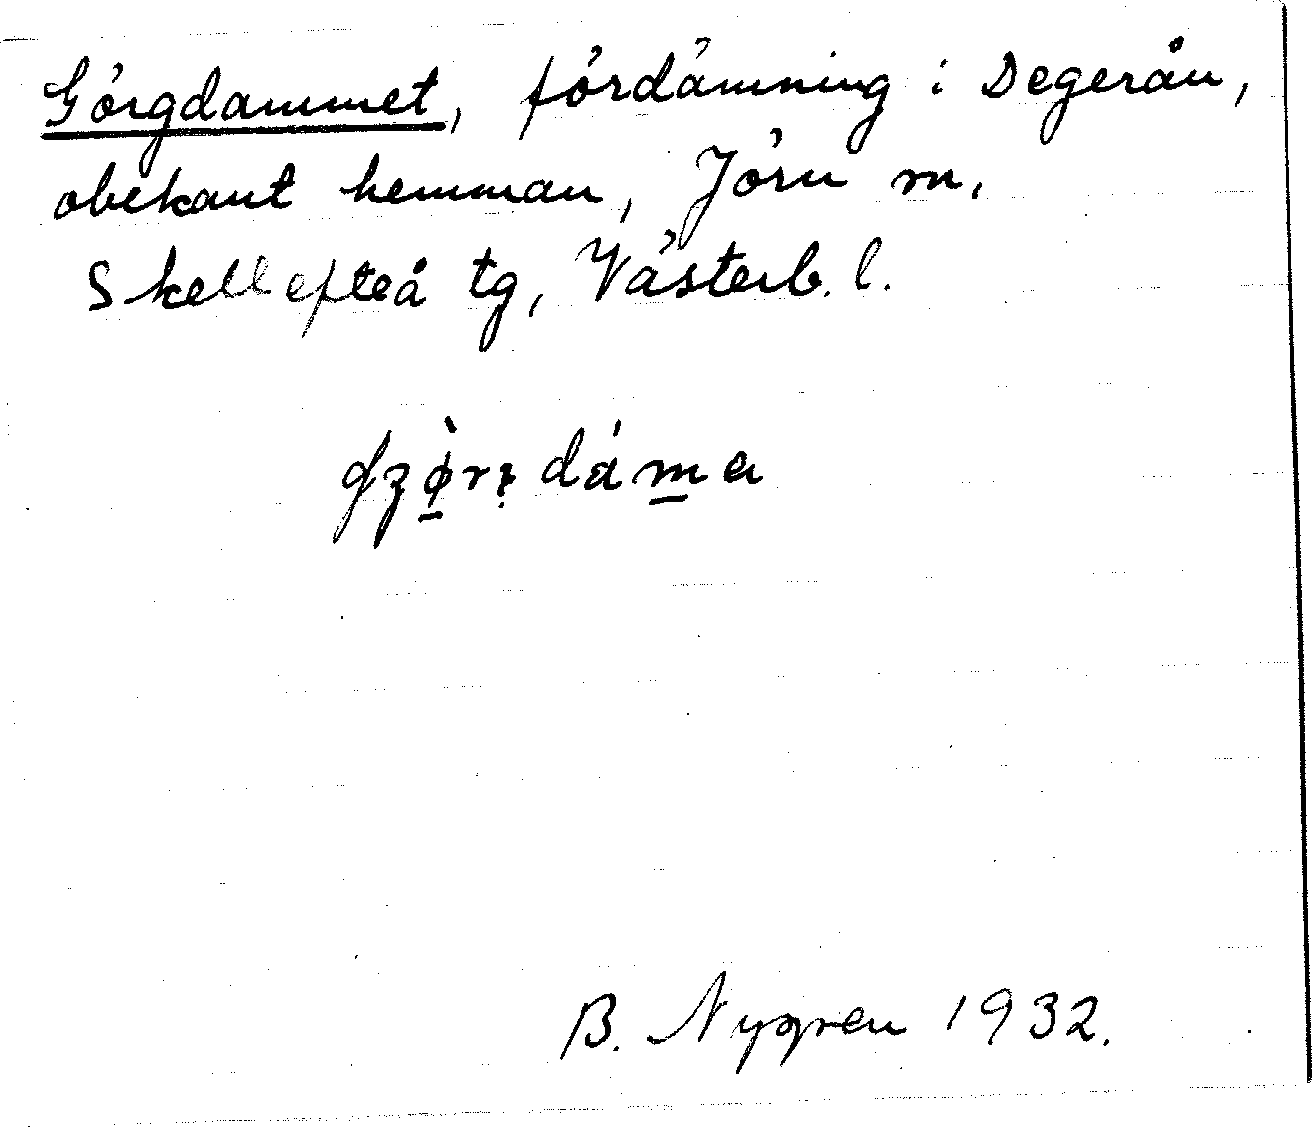 Görgdammet, fördämning i Degerån,
obekant hemman, Jörn sn,
Skellefteå tg, Västerb. l.
B. Nygren 1932.